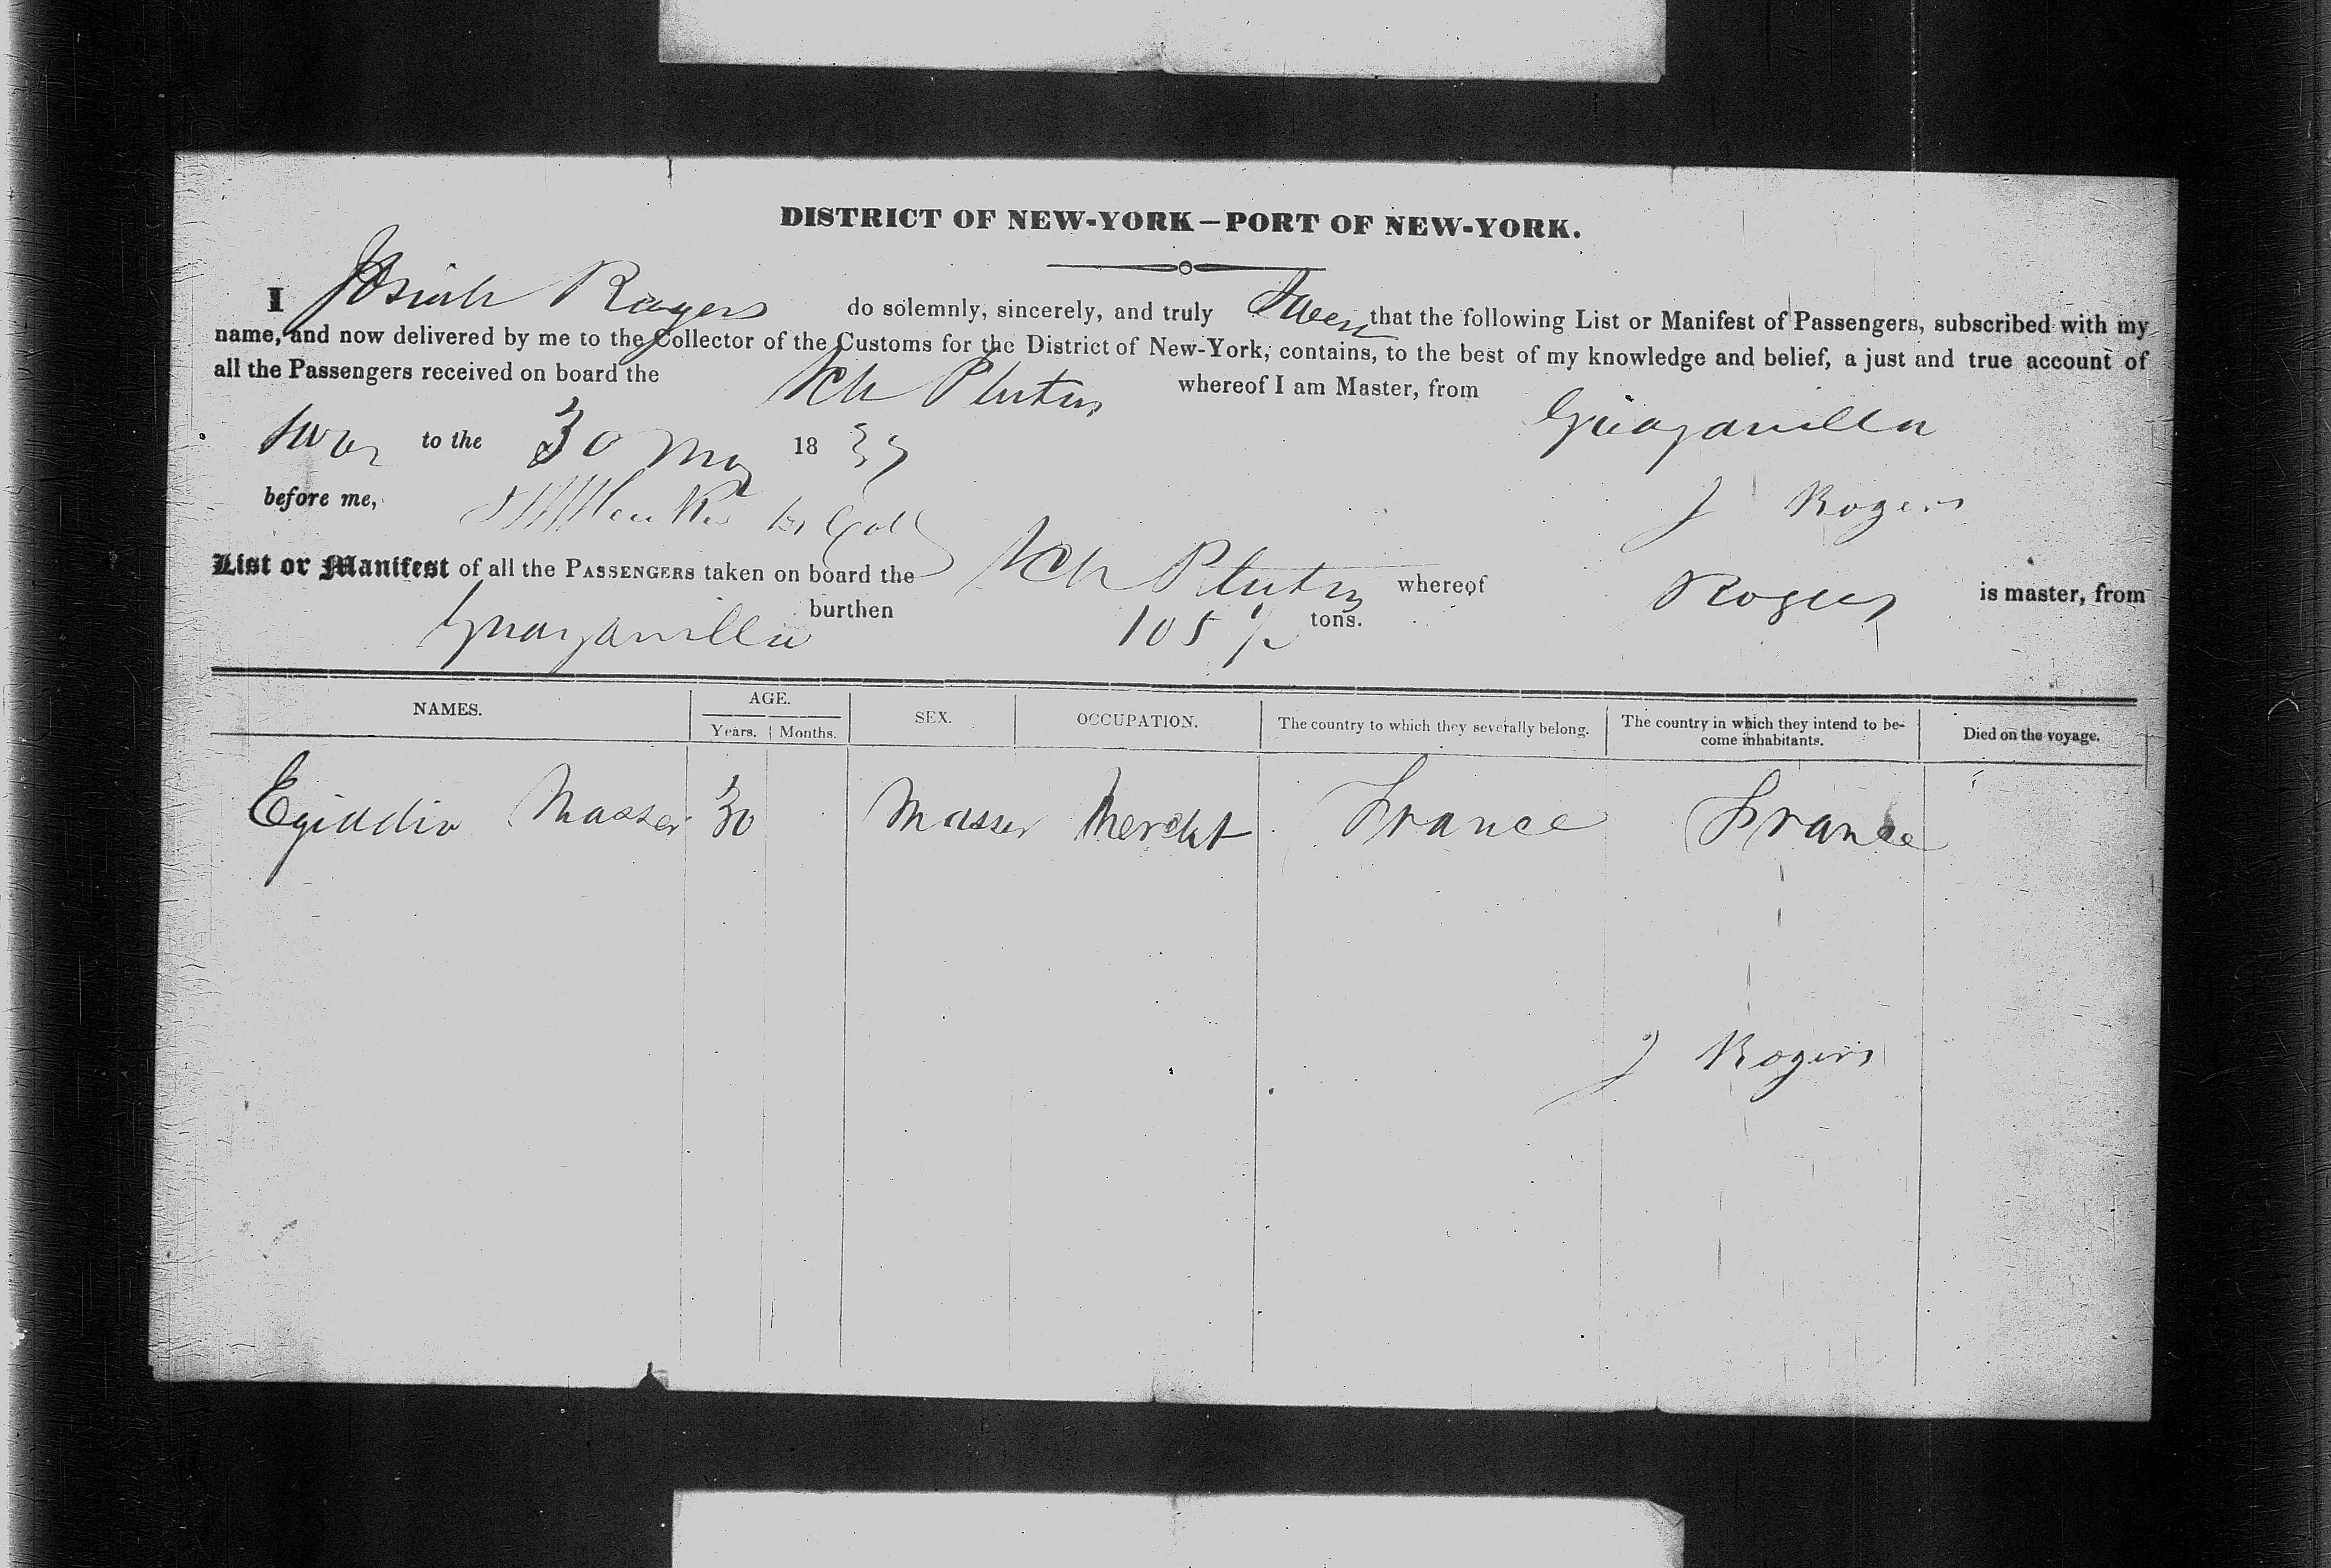 DISTRICT OF NEW-YORK—PORT OF NEW-YORK.
I Josiah Rogers do solemnly, sincerely, and truly Swear that the following List or Manifest of Passengers, subscribed with my
name, and now delivered by me to the Collector of the Customs for the District of New-York, contains, to the best of my knowledge and belief, a just and true account of
all the Passengers received on board the Sch Plutus whereof I am Master, from Guayanilla
Swor to the 30 May 1837
before me, J Rogers
List or Manifest of all the PASSENGERS taken on board the Sch Plutus whereof Rogers is master, from
Guayanilla burthen 105 tons.
NAMES. AGE. Years. Months. SEX. OCCUPATION. The country to which they severally belong. The country in which they intend to become inhabitants. Died on the voyage.
Egiddio Masser 30 Masser Mercht France France
J Rogers